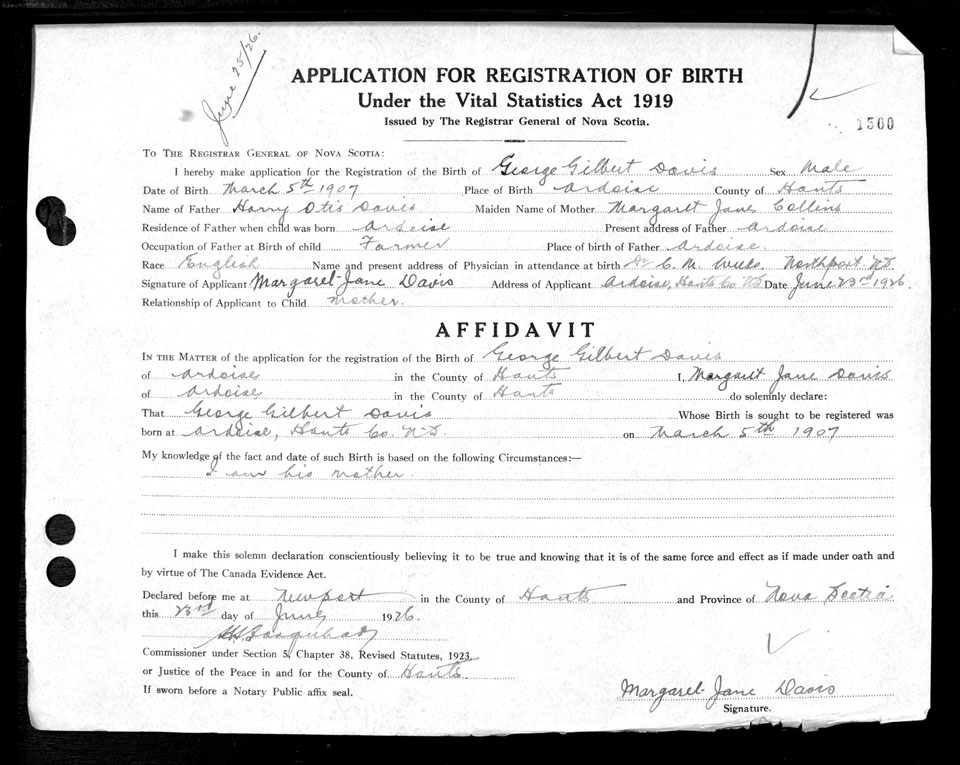 June 25/26.
APPLICATION FOR REGISTRATION OF BIRTH
Under the Vital Statistics Act 1919
Issued by The Registrar General of Nova Scotia.
1500
TO THE REGISTRAR GENERAL OF NOVA SCOTIA:
I hereby make application for the Registration of the Birth of George Gilbert Davis Sex Male
Date of Birth March 5th 1907 Place of Birth Ardoise County of Hants
Name of Father Harry Otis Davis Maiden Name of Mother Margaret Jane Collins
Residence of Father when child was born Ardoise Present address of Father Ardoise
Occupation of Father at Birth of child Farmer Place of birth of Father Ardoise.
Race English Name and present address of Physician in attendance at birth Dr C. M. Northport. N.S.
Signature of Applicant Margaret Jane Davis Address of Applicant Ardoise, Hants Co. N.S. Date June 23rd 1926.
Relationship of Applicant to Child Mother.
AFFIDAVIT
IN THE MATTER of the application for the registration of the Birth of George Gilbert Davis
of Ardoise in the County of Hants I, Margaret Jane Davis
of Ardoise in the County of Hants do solemnly declare:
That George Gilbert Davis Whose Birth is sought to be registered was
born at Ardoise, Hants Co. N.S. on March 5th 1907
My knowledge of the fact and date of such Birth is based on the following Circumstances:—
I am his mother.
I make this solemn declaration conscientiously believing it to be true and knowing that it is of the same force and effect as if made under oath and
by virtue of The Canada Evidence Act.
Declared before me at Newport in the County of Hants and Province of Nova Scotia
this 23rd day of June 1926.
Commissioner under Section 5, Chapter 38, Revised Statutes, 1923.
or Justice of the Peace in and for the County of Hants.
If sworn before a Notary Public affix seal.
Margaret Jane Davis
Signature.